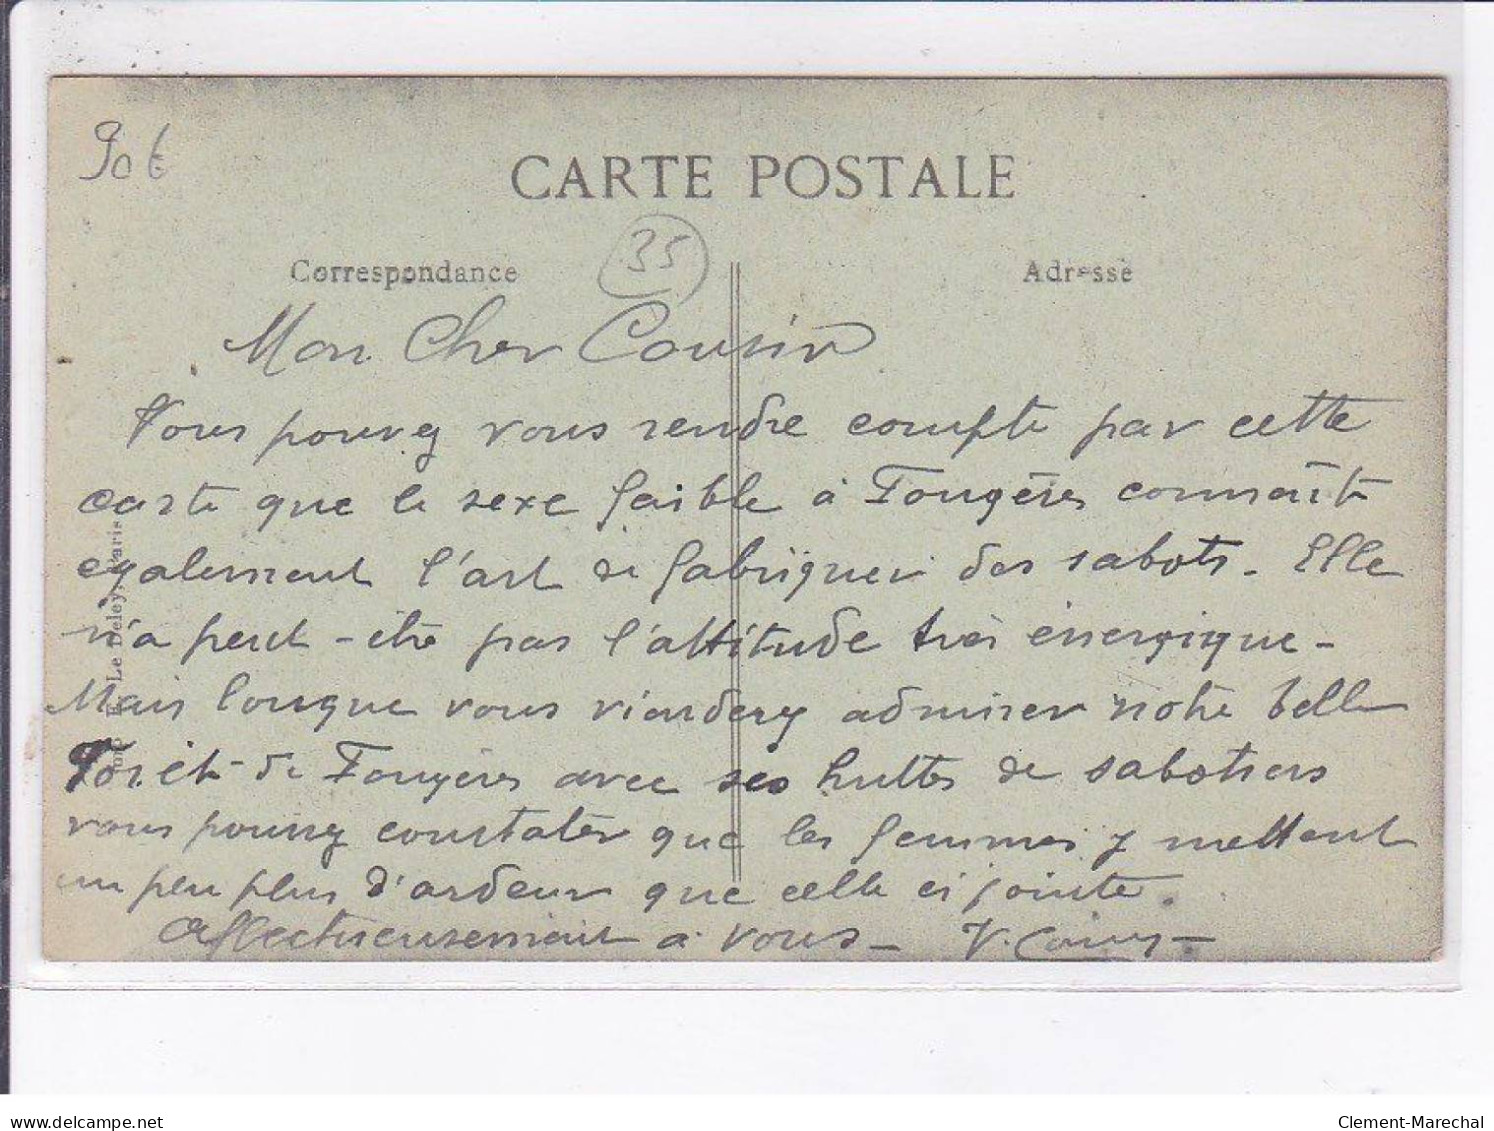 90 €
CARTE POSTALE
35
Correspondance
Adresse
Mon Cher Cousin
Vous pouvez vous rendre compte par cette
carte que le sexe faible à Fougères connaît
également l'art de fabriquer des sabots. Elle
n'a peut-être pas l'attitude très énergique -
Mais lorsque vous viendrez admirer notre belle
Forêt de Fougères avec ses huttes de sabotiers
vous pourrez constater que les femmes y mettent
un peu plus d'ardeur que celle ci jointe.
Affectueusement à vous -
Imp. E. Le Deley, Paris
www.delcampe.net
Clement-Marechal